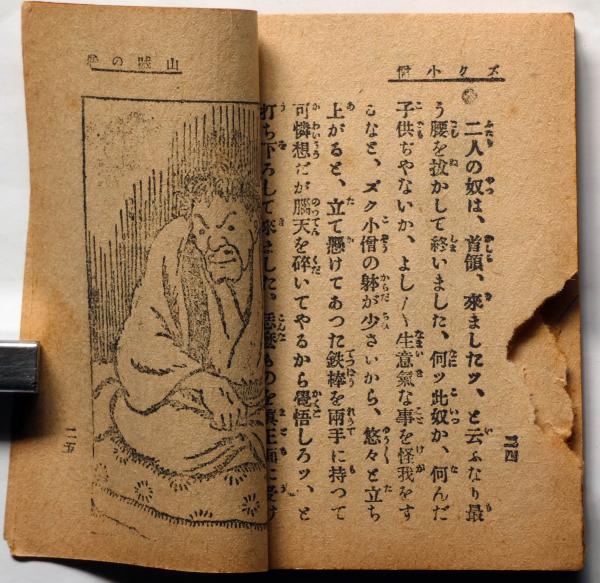 ズク小僧
二人の奴は、首領、來ましたッ、と云ふなり最
う腰を拔かして終いました、何ッ此奴か、何んだ
子供ぢやないか、よし〳〵生意氣な事を怪我をす
るなと、ズク小僧の躰が少さいから、悠々と立ち
上がると、立て懸けてあつた鉄棒を兩手に持つて
可憐想だが腦天を碎いてやるから覺悟しろッ、と
打ち下ろして來ました。恁麽ものを眞正面に受け
二四
山賊の
二五